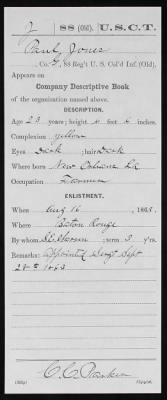 J | 88 (Old). | U.S.C.T.
Paul Jones
, Co. G, 88 Reg't U. S. Col'd Inf. (Old).
Appears on
Company Descriptive Book
of the organization named above.
DESCRIPTION.
Age 23 years; height 5 feet 6 inches.
Complexion yellow
Eyes Dark ; hair Dark
Where born New Orleans La
Occupation Farmer
ENLISTMENT.
When Aug 16 , 1863.
Where Baton Rouge
By whom ; term 3 y'rs.
Remarks: Appointed Sergt Sept
28th 1863
C. C. Parker